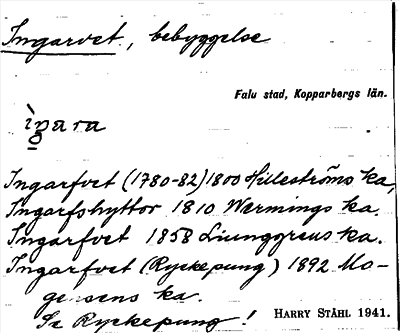 Ingarvet, bebyggelse
Falu stad, Kopparbergs län.
Ingarfvet (1780-82) 1800 Hilleströms ka,
Ingarfshyttor 1810 Wermings ka.
Ingarfvet 1858 Ljunggrens ka.
Ingarfvet (Ryckepung) 1892 Mo-
gensens ka.
Se Ryckepung!
HARRY STÅHL 1941.